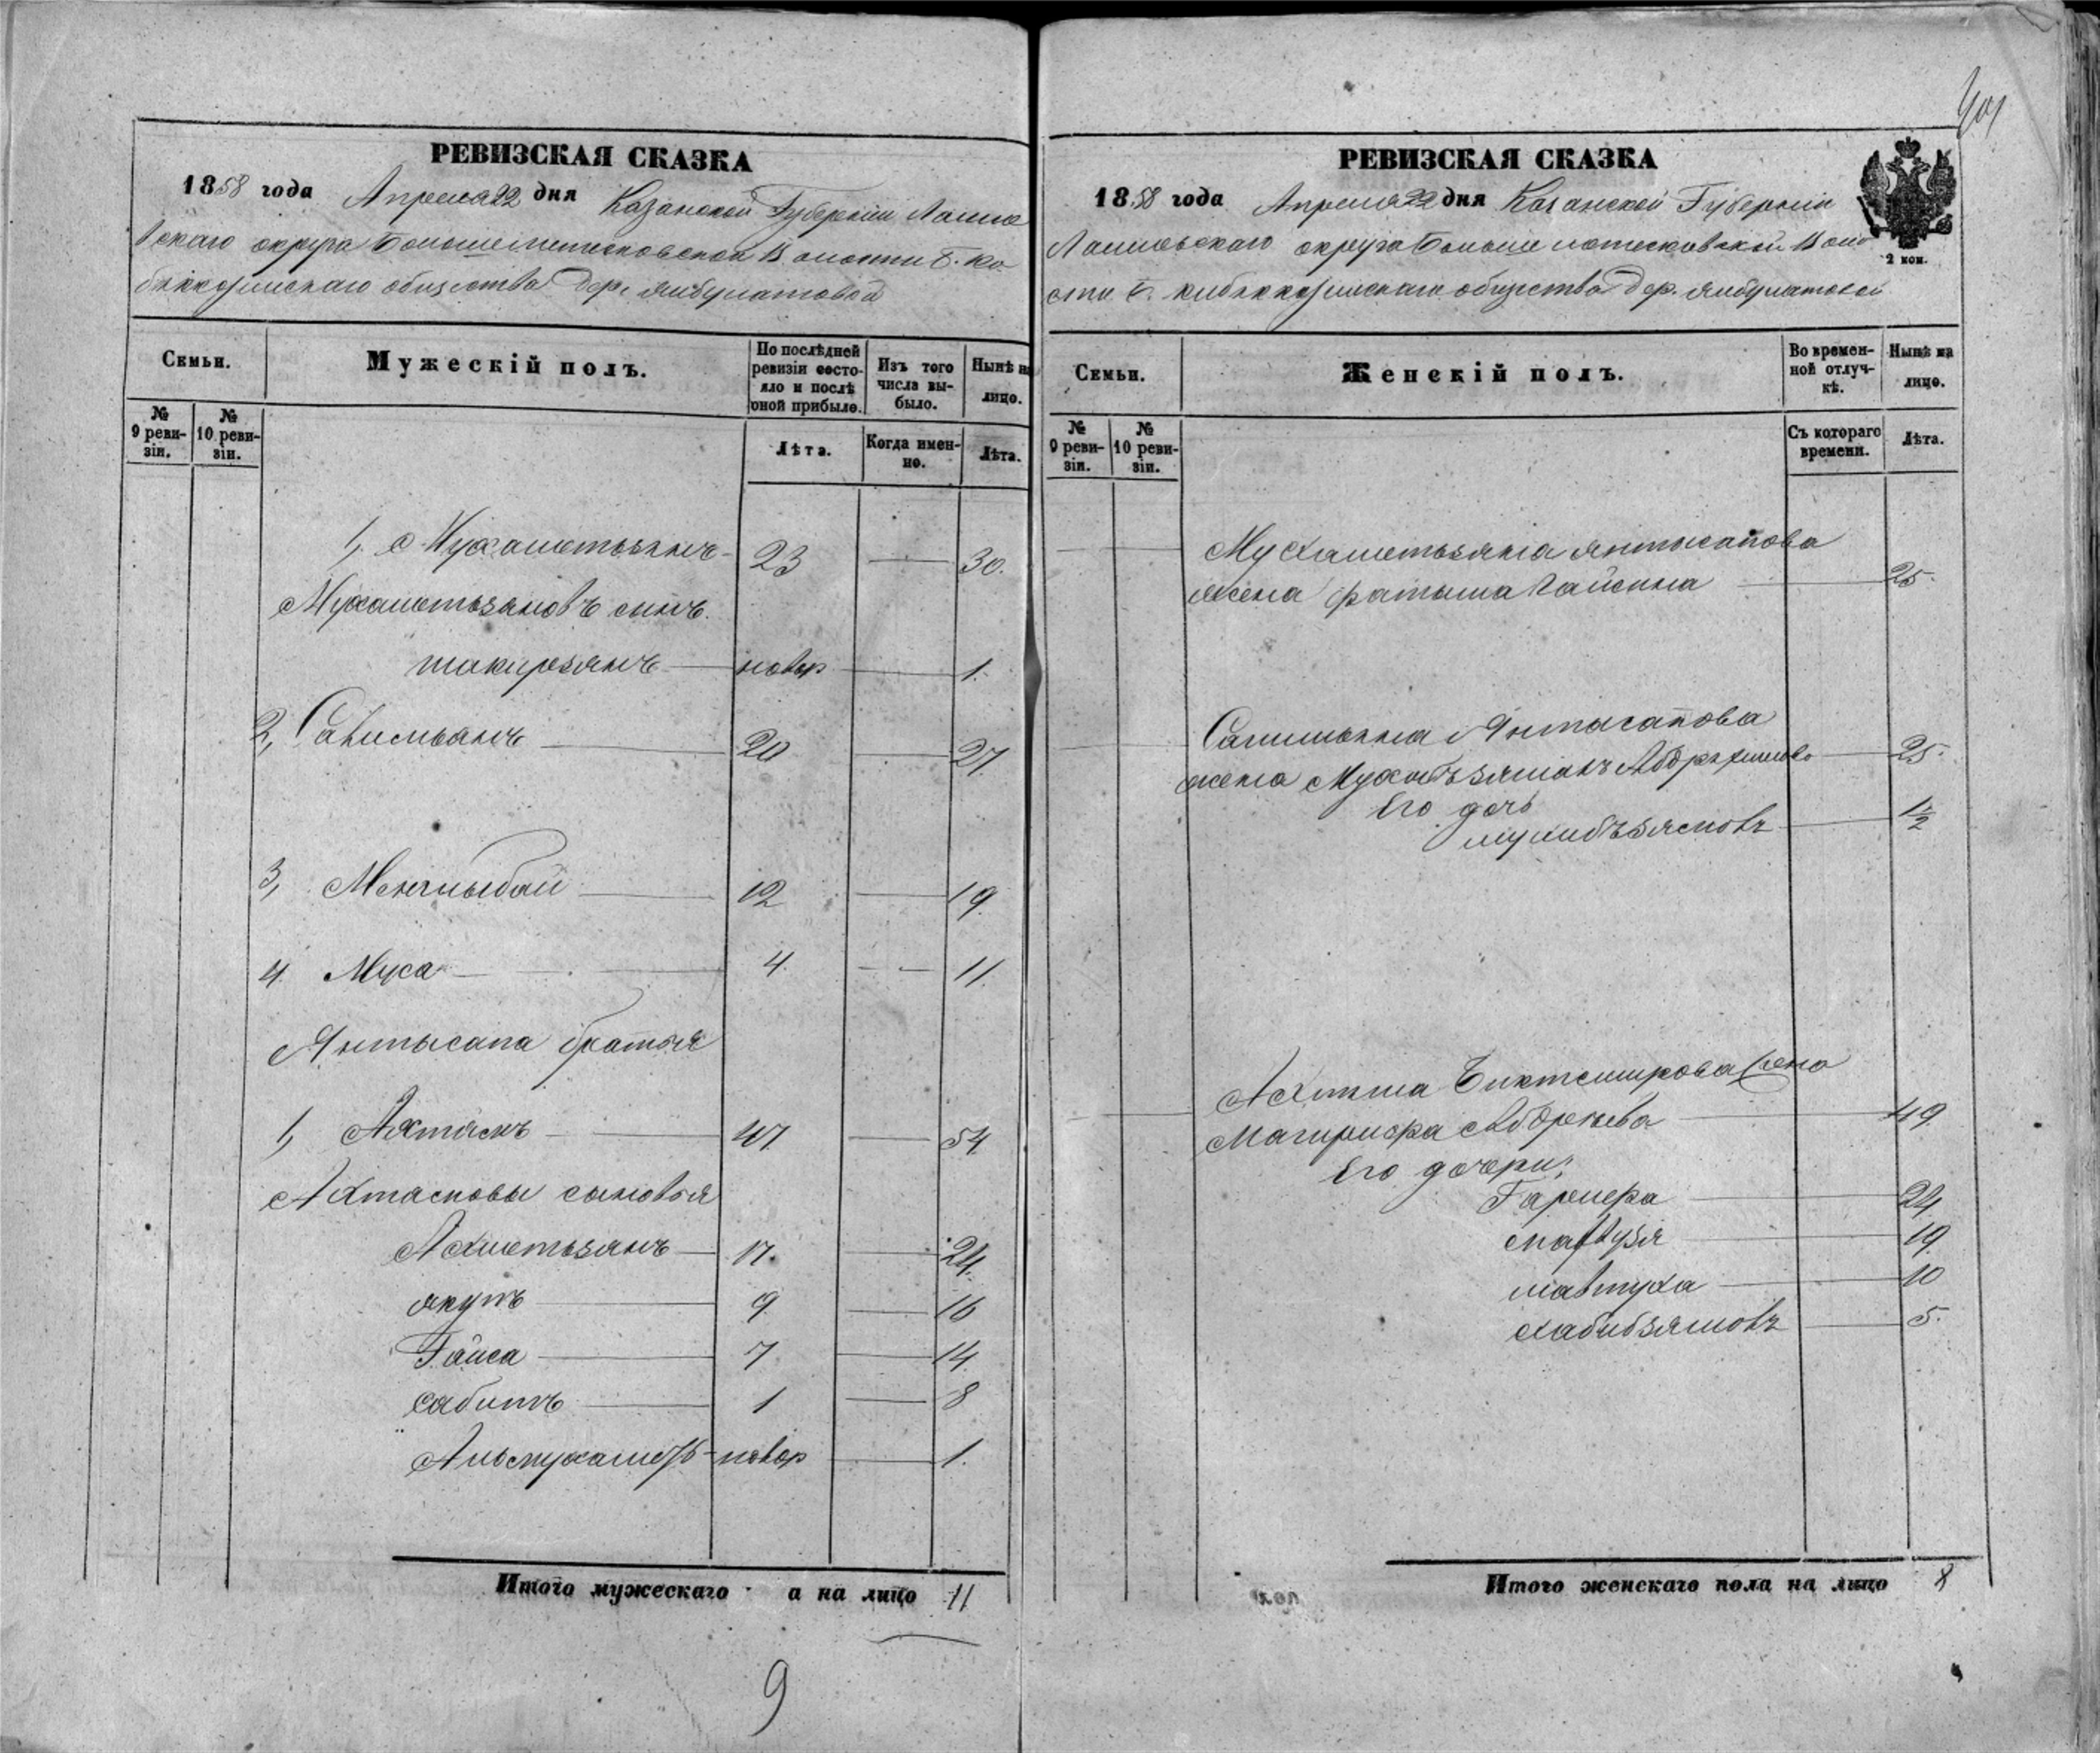 401
РЕВИЗСКАЯ СКАЗКА
1858 года Апреля 22 дня Казанской Губернии Лаише
вскаго округа Больше метесковской Волости Б. Ки
бяккозинскаго общества дер. Янбулатовой
Семьи.
Мужескій полъ.
По послѣдней ревизіи состояло и послѣ оной прибыло.
Изъ того числа выбыло.
Нынѣ на лицо.
№ 9 ревизіи.
№ 10 ревизіи.
Лѣта.
Когда именно.
Лѣта.
1, Мухаметьзянъ 23 — 30.
Мухаметьзяновъ сынъ
шакирзянъ новор — 1.
2, 20 — 27.
3, Менглыбай 12 — 19.
4. Муса 4. — 11.
Янтысапа братья
1, Ахтямъ 47. — 54.
Ахтямовы сыновья
Ахметьзянъ 17. 24.
якупъ 9. — 16
Гайса 7 — 14.
сабитъ 1 — 8
новор — 1.
Итого мужескаго а на лицо 11
9
РЕВИЗСКАЯ СКАЗКА
1858 года Апреля 22 дня Казанской Губерніи
Лаишевскаго округа Больше метесковской Воло
сти Б. кибяккозинскаго общества дер. Янбулатовой
2 коп.
Семьи.
Женскій полъ.
Во временной отлучкѣ.
Нынѣ на лицо.
№ 9 ревизіи.
№ 10 ревизіи.
Съ котораго времени.
Лѣта.
Мухаметьзяна янтысапова
жена фатыма Гайсина 25.
Янтысапова
жена 25.
Его дочь
1½
Ахтяма Биктемирова жена
49
Его дочери;
24
19.
мавтуха 10
5.
Итого женскаго пола на лицо 8